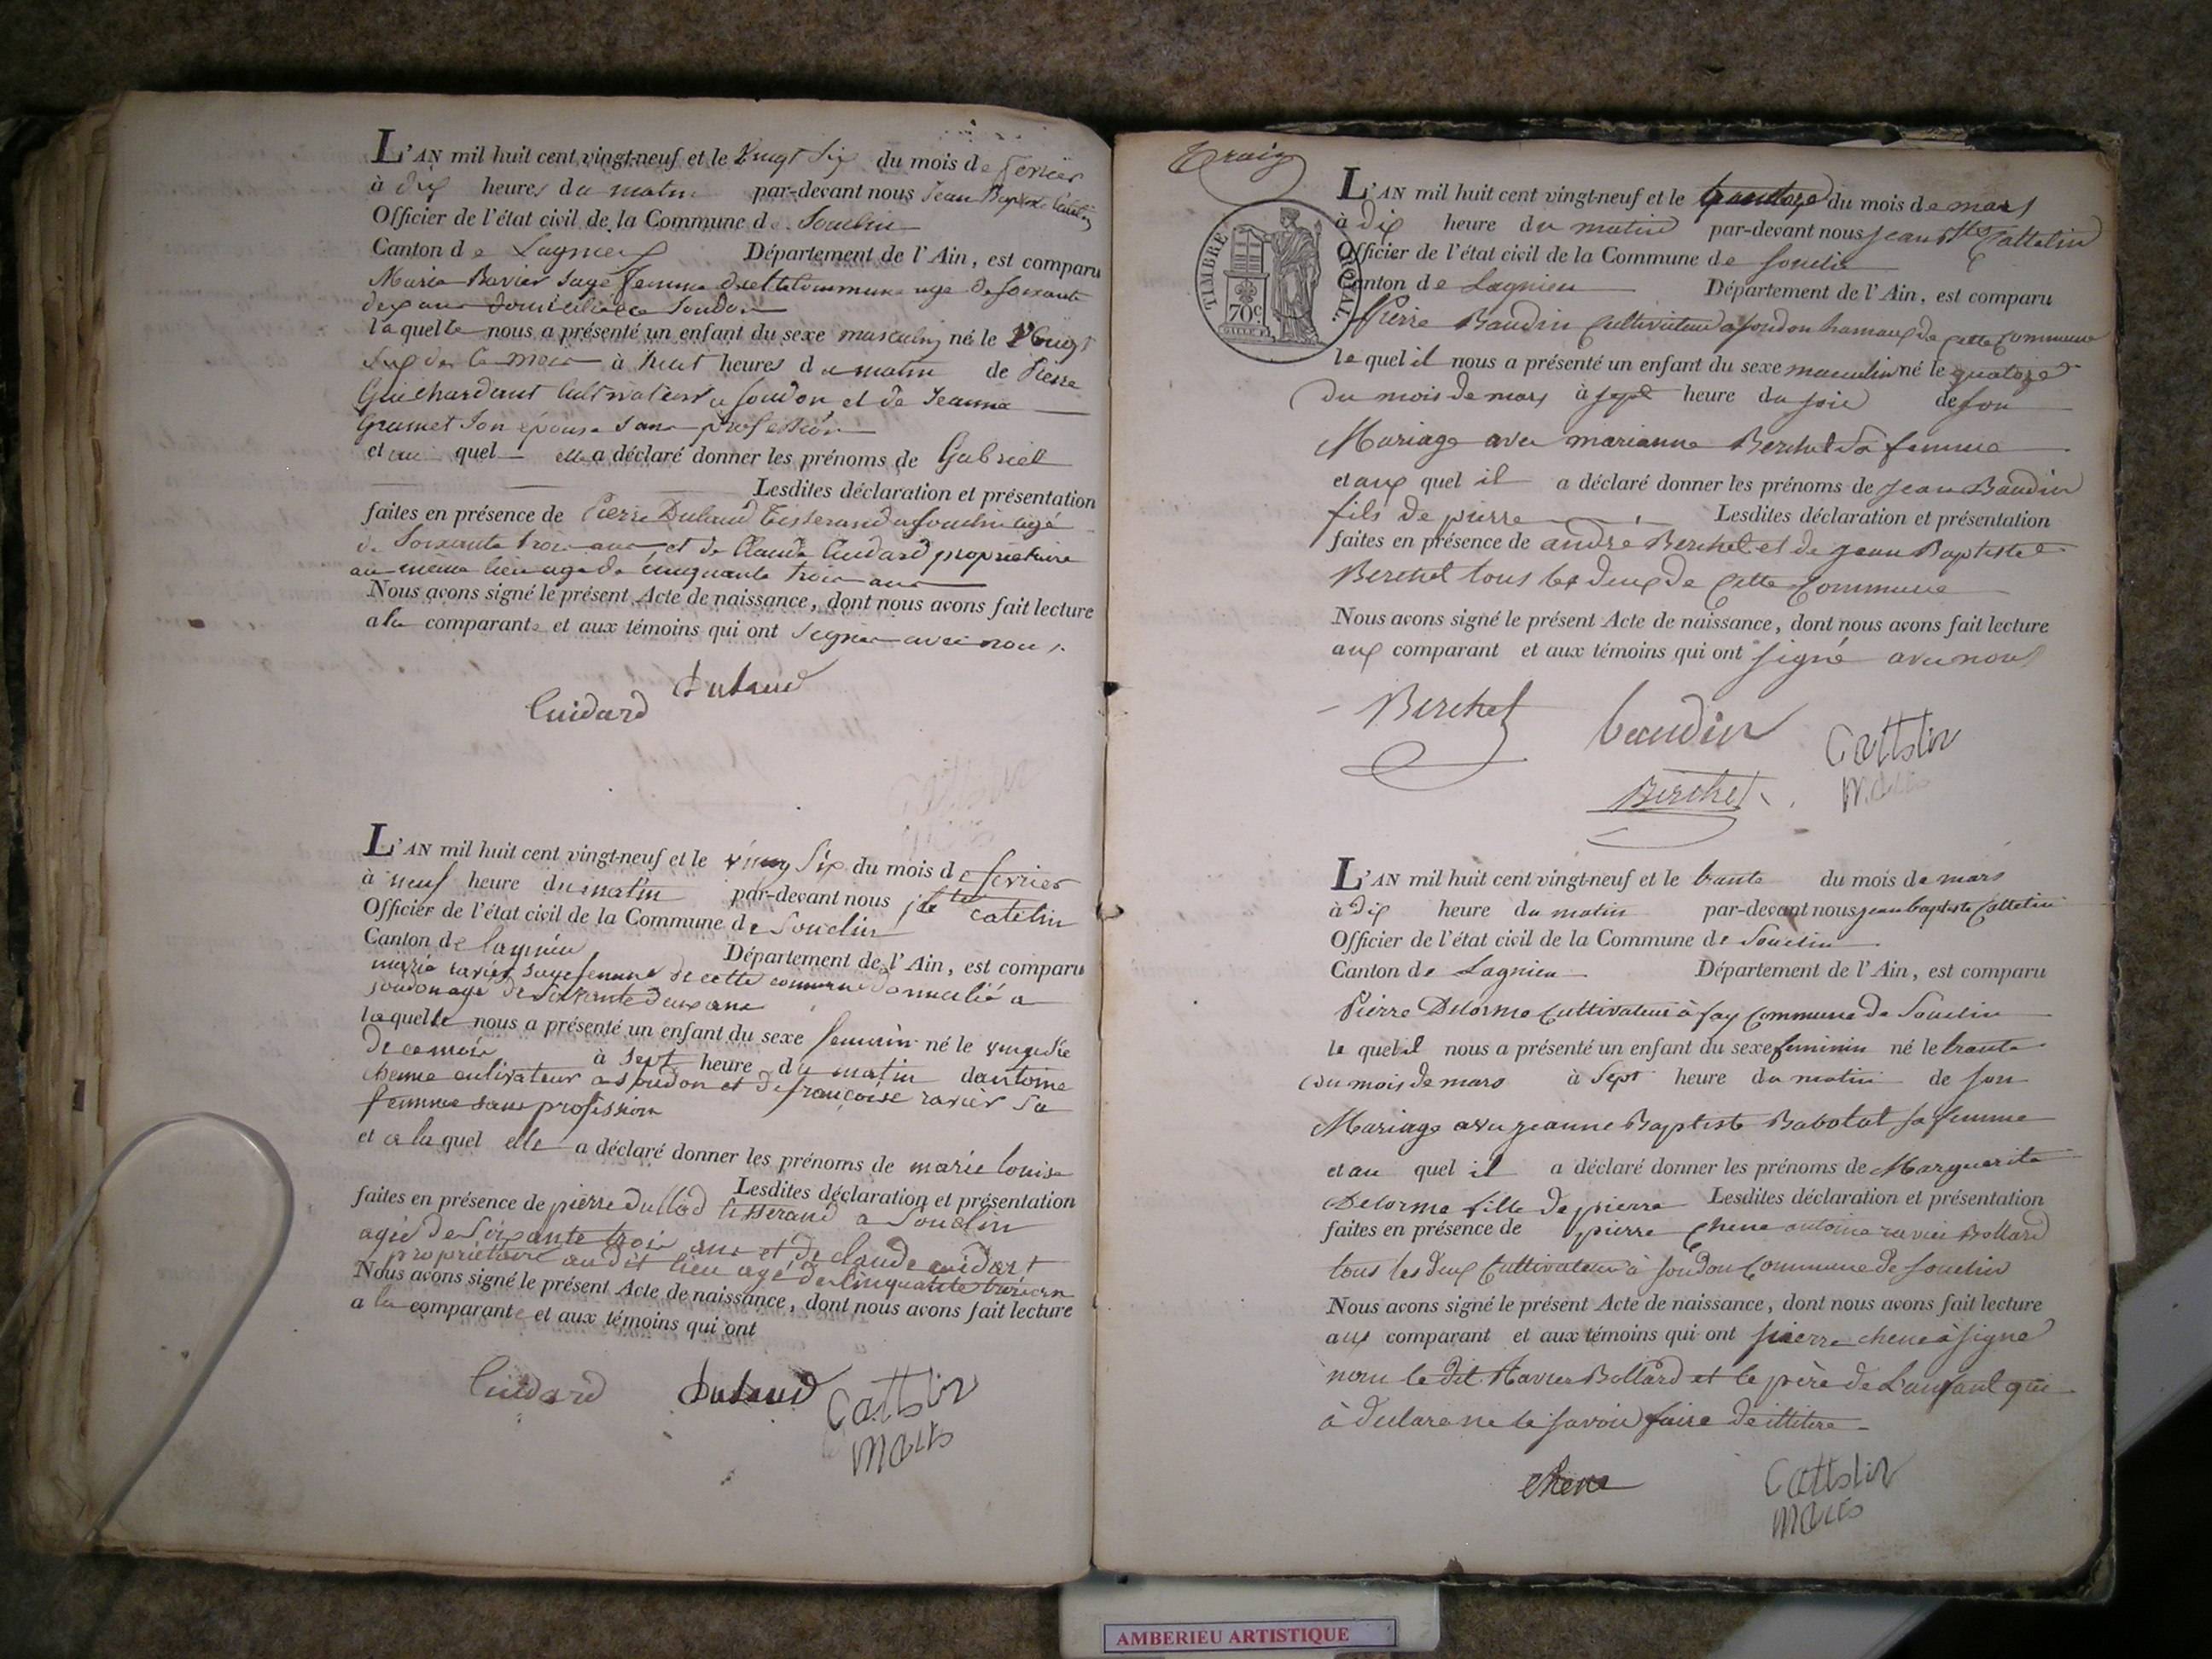 L'AN mil huit cent vingt-neuf et le Vingt Six du mois de fevrier
à dix heures du matin par-devant nous Jean Baptiste Catelin
Officier de l'état civil de la Commune de Souclin
Canton de Lagnieu Département de l'Ain, est comparu
Marie Ravier Sage femme de cette Commune age de soixante
deux ans domiciliée a Soudon
laquelle nous a présenté un enfant du sexe masculin né le Vingt
Six de ce mois à huit heures du matin de Pierre
Guichardant Cultivateur a Soudon et de Jeanne
Grumet son épouse sans profession
et au quel elle a déclaré donner les prénoms de Gabriel
Lesdites déclaration et présentation
faites en présence de Pierre Dulaud Tisserand a Souclin agé
de Soixante trois ans et de Claude Cuidard propriétaire
au même lieu age de cinquante trois ans
Nous avons signé le présent Acte de naissance, dont nous avons fait lecture
a la comparante et aux témoins qui ont signer avec nous.
Cuidard Dulaud
L'AN mil huit cent vingt-neuf et le vingt Six du mois de fevrier
à neuf heure du matin par-devant nous j bte catelin
Officier de l'état civil de la Commune de Souclin
Canton de lagnieu Département de l'Ain, est comparu
marie ravier sagefemme de cette commune domicilié a
soudon agé de Soixante deux ans
laquelle nous a présenté un enfant du sexe feminin né le vingt Six
de ce mois à sept heure du matin dantoine
chenne cultivateur a soudon et de francoise ravier sa
femme sans profission
et a laquel elle a déclaré donner les prénoms de marie louise
Lesdites déclaration et présentation
faites en présence de pierre dullod tisserand a Souclin
agé de Soixante trois ans et de claude cuidart
propriétaire audit lieu agé de Cinquante trois an
Nous avons signé le présent Acte de naissance, dont nous avons fait lecture
a la comparante et aux témoins qui ont
Cuidard Dulaud Cattslin
maire
Troix
TIMBRE ROYAL
70c
L'AN mil huit cent vingt-neuf et le quatorze du mois de mars
à dix heure du matin par-devant nous jean Bte Cattelin
Officier de l'état civil de la Commune de Souclin
Canton de Lagnieu Département de l'Ain, est comparu
Pierre Baudin Cultivateur a soudon hamaux de cette commune
lequel il nous a présenté un enfant du sexe masculin né le quatoze
du mois de mars à sept heure du soir de son
Mariage avec marianne Berchet sa femme
et aux quel il a déclaré donner les prénoms de jean Baudin
fils de pierre Lesdites déclaration et présentation
faites en présence de andré Berchet et de jean Baptiste
Berchet tous les deux de Cette Commune
Nous avons signé le présent Acte de naissance, dont nous avons fait lecture
aux comparant et aux témoins qui ont signé avec nous
Berchet baudin Cattslin
Berchet maire
L'AN mil huit cent vingt-neuf et le trante du mois de mars
à dix heure du matin par-devant nous jean baptiste Cattelin
Officier de l'état civil de la Commune de Souclin
Canton de Lagnieu Département de l'Ain, est comparu
Pierre Delorme Cultivateur à fay Commune de Souclin
le quel il nous a présenté un enfant du sexe feminin né le trante
du mois de mars à Sept heure du matin de son
Mariage avec jeanne Baptiste Babolat sa femme
et au quel il a déclaré donner les prénoms de Marguerite
Delorme fille de pierre Lesdites déclaration et présentation
faites en présence de pierre Chene antoine ravier Bollard
tous les deux Cultivateur à soudon Commune de souclin
Nous avons signé le présent Acte de naissance, dont nous avons fait lecture
aux comparant et aux témoins qui ont pierre chene à signé
non le dit Ravier Bollard et le père de L'anfant qui
à déclare ne le savoir faire de
chene Cattslin
maire
AMBERIEU ARTISTIQUE